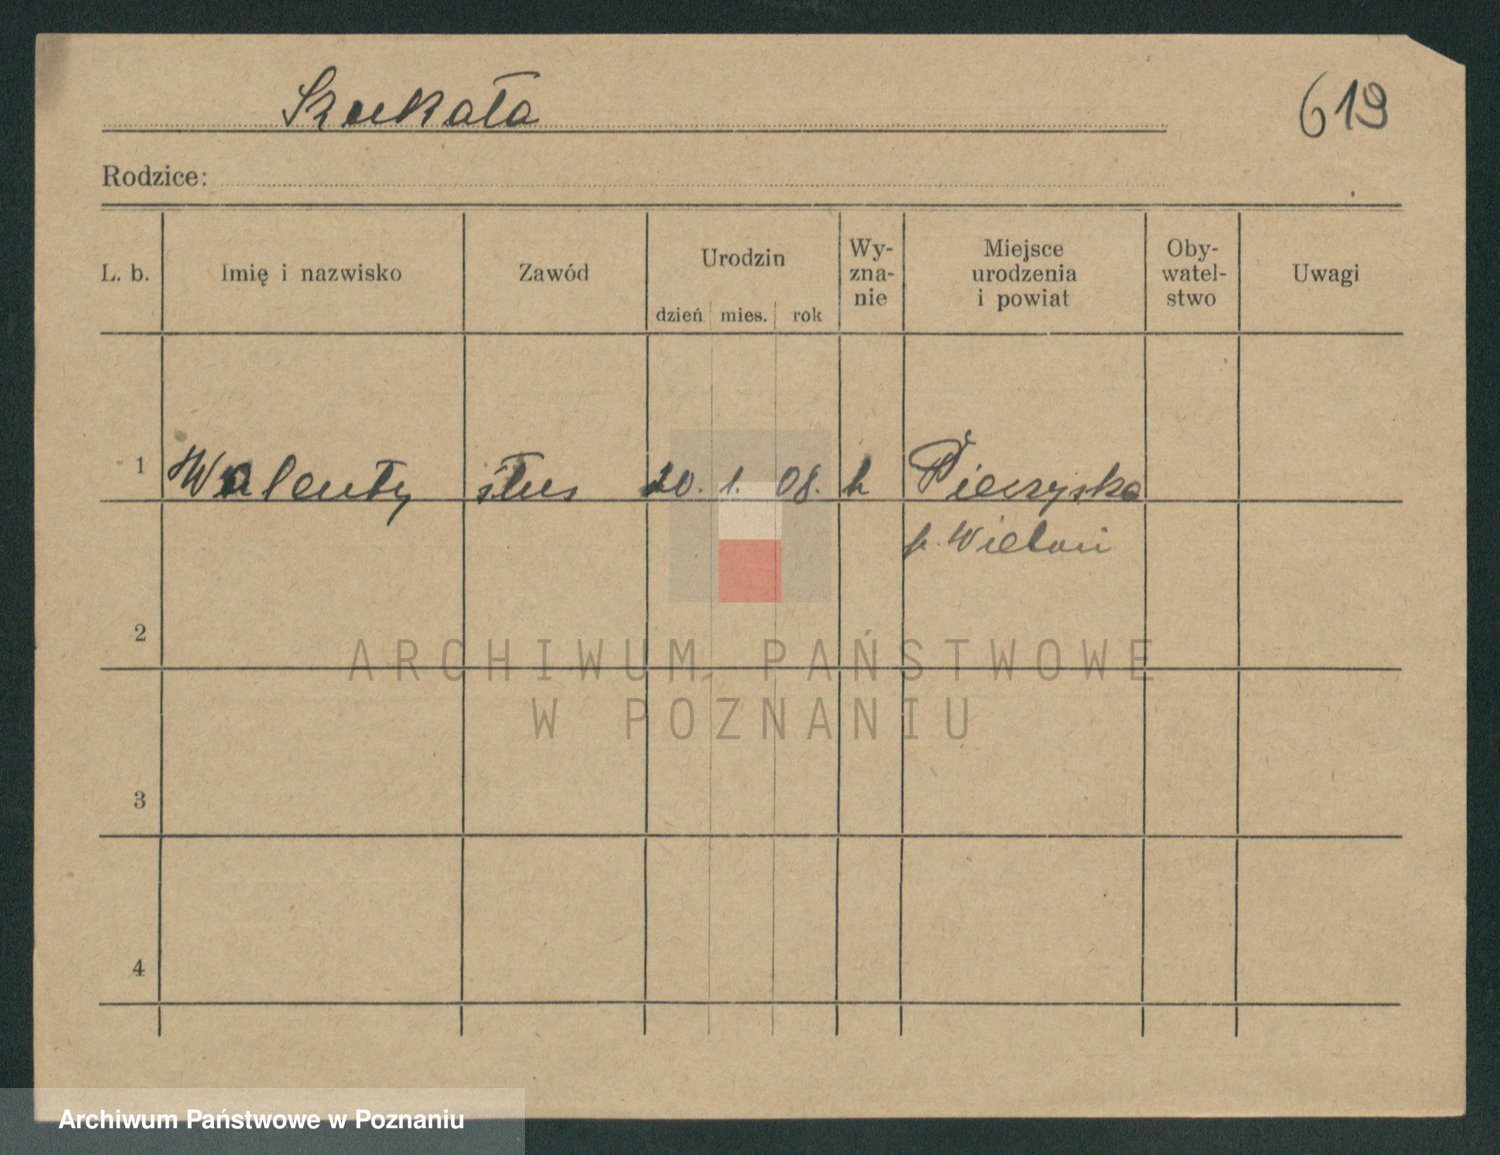 Szukała
619
Rodzice:
L. b. Imię i nazwisko Zawód Urodzin dzień mies. rok Wy-zna-nie Miejsce urodzenia i powiat Oby-watel-stwo Uwagi
1 Walenty ślus 20. 1. 08. k Pieczyska
p. Wieluń
2
3
4
ARCHIWUM PAŃSTWOWE
W POZNANIU
Archiwum Państwowe w Poznaniu